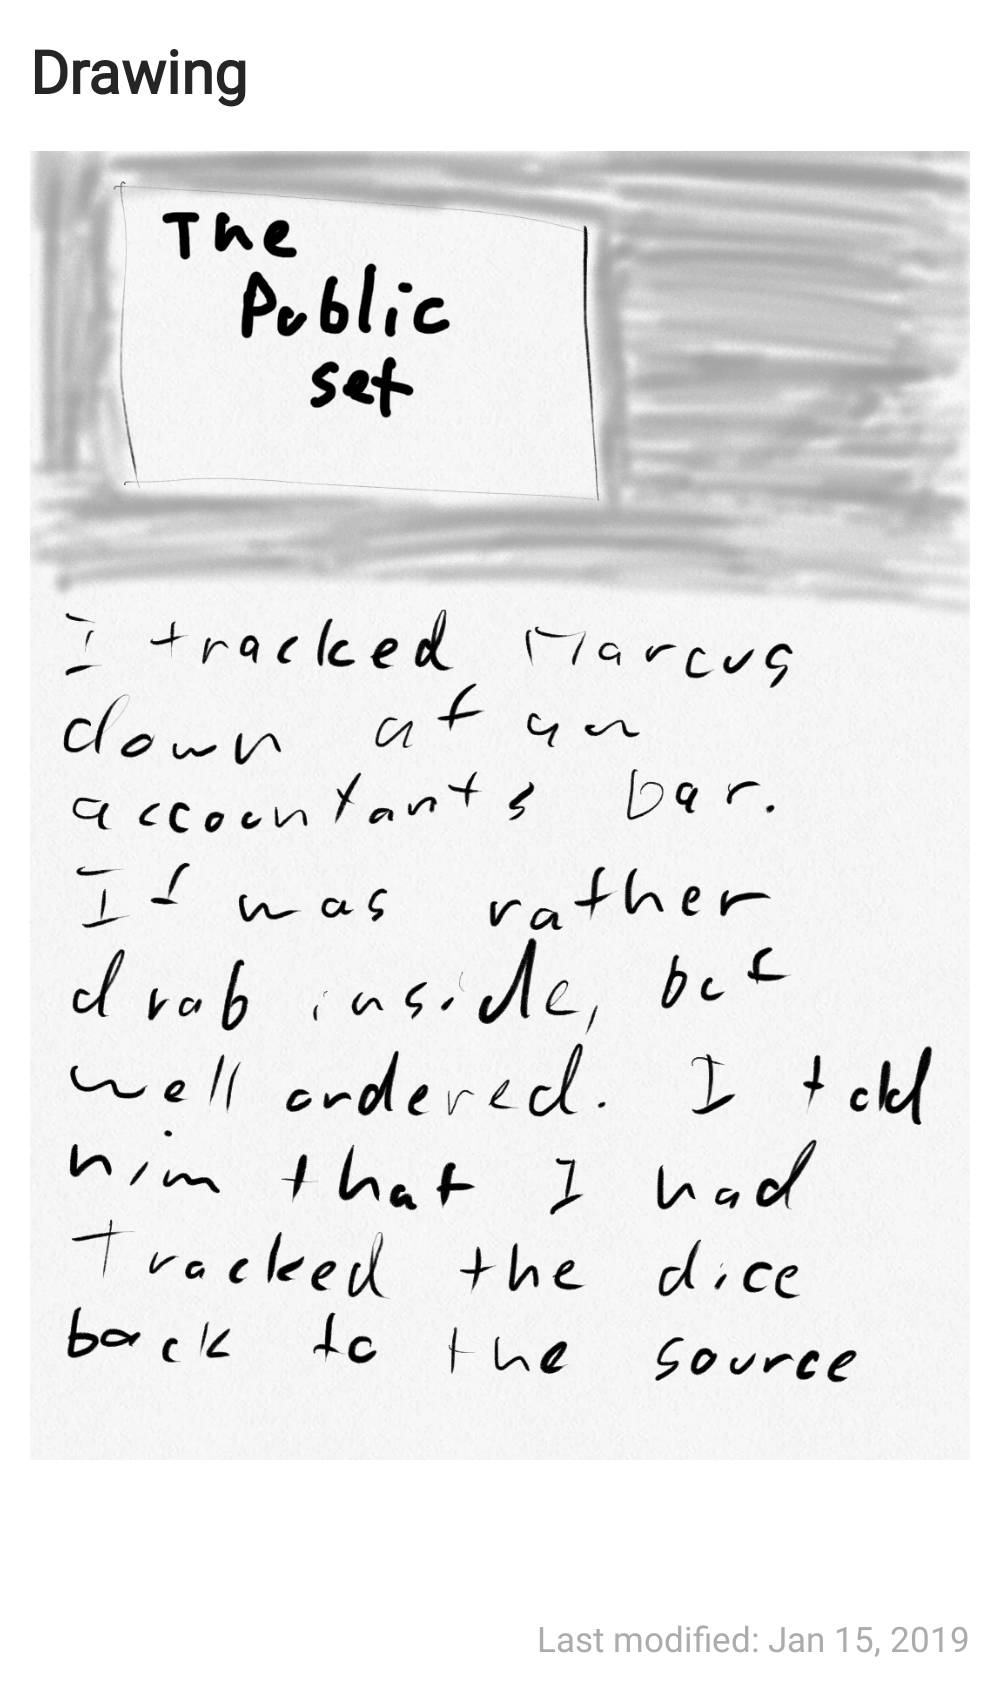 Drawing
The
Public
set
I tracked Marcus
down at an
accountants bar.
It was rather
drab inside, but
well ordered. I told
him that I had
tracked the dice
back to the source
Last modified: Jan 15, 2019